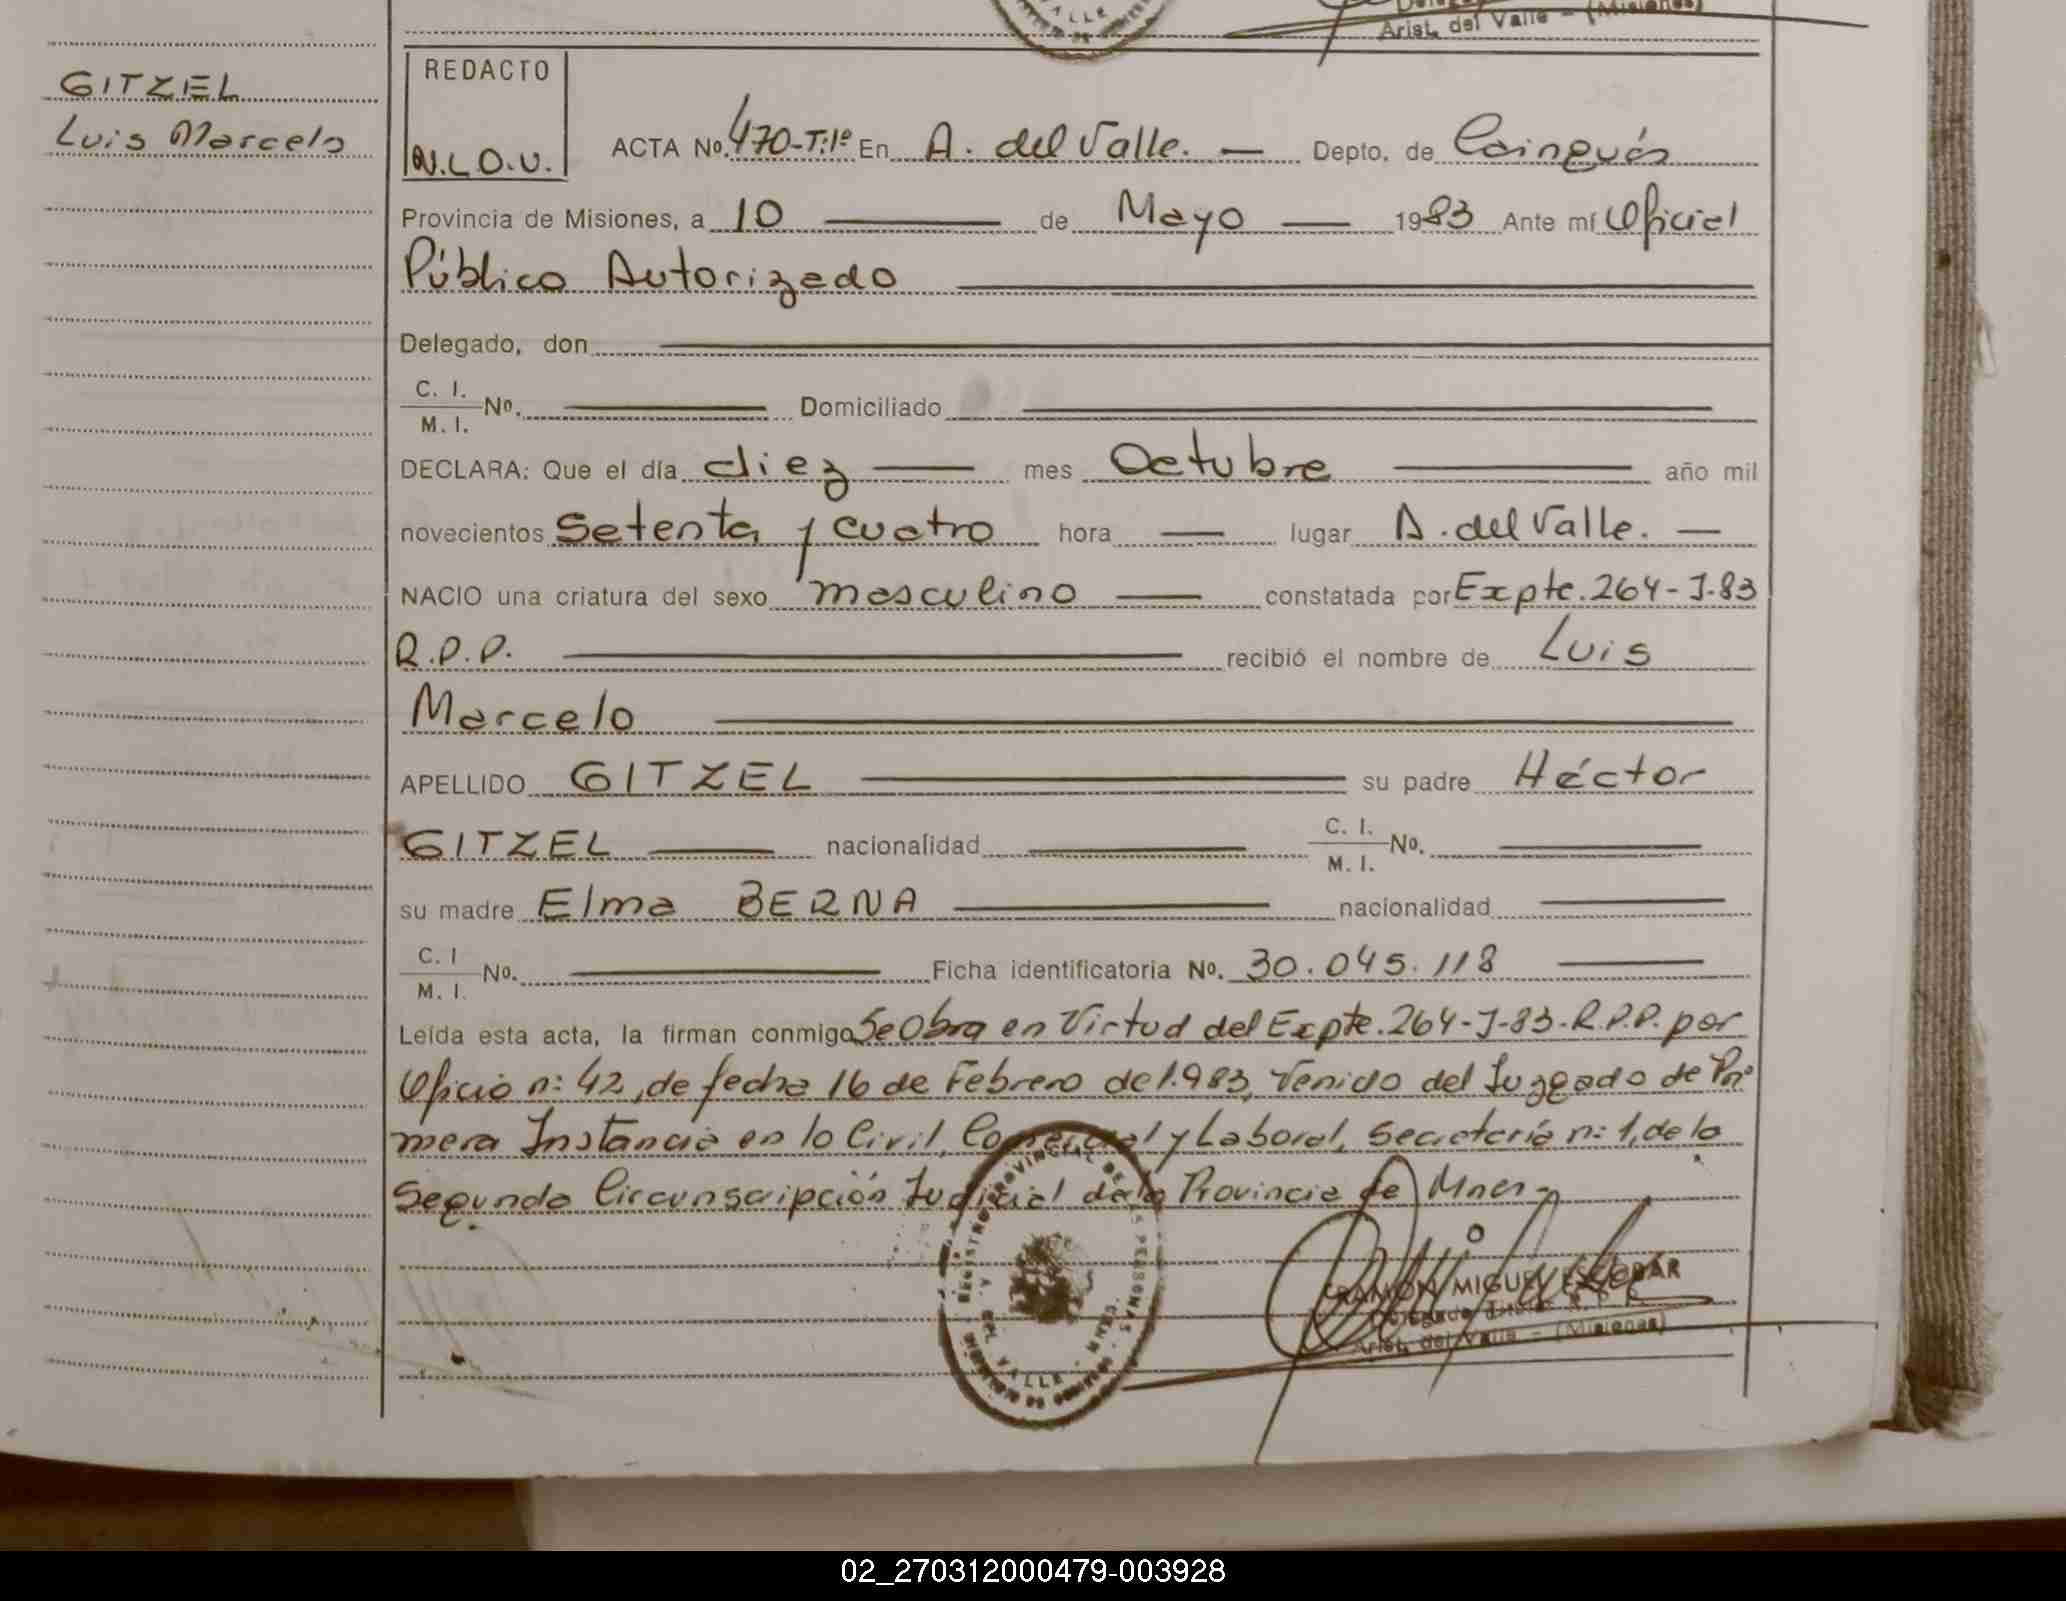 Arist. del Valle - (Misiones)
GITZEL
Luis Marcelo
REDACTO
N.L.O.U.
ACTA No. 470-T:1º En A. del Valle. — Depto. de Cainguás
Provincia de Misiones, a 10 — de Mayo — 1983 Ante mí Oficial
Público Autorizado
Delegado, don
C. I.
M. I. No. Domiciliado
DECLARA: Que el día diez — mes Octubre — año mil
novecientos Setenta y cuatro hora — lugar A. del Valle. —
NACIO una criatura del sexo masculino — constatada por Expte. 264-J-83
R.P.P. — recibió el nombre de Luis
Marcelo
APELLIDO GITZEL su padre Héctor
GITZEL — nacionalidad — C. I.
M. I. No. —
su madre Elma BERNA — nacionalidad —
C. I
M. I. No. — Ficha identificatoria No. 30.045.118 —
Leída esta acta, la firman conmigo Se Obra en Virtud del Expte. 264-J-83-R.P.P. por
Oficio n: 42, de fecha 16 de Febrero de 1.983, Venido del Juzgado de Pri
mera Instancia en lo Civil, Comercial y Laboral, Secretaría n: 1, de la
Segunda Circunscripción Judicial de la Provincia de Mnes-
REGISTRO PROVINCIAL DE LAS PERSONAS
DEL VALLE
RAMON MIGUEL ESCOBAR
Delegado Titular R. P. P.
Arist. del Valle - (Misiones)
02_270312000479-003928